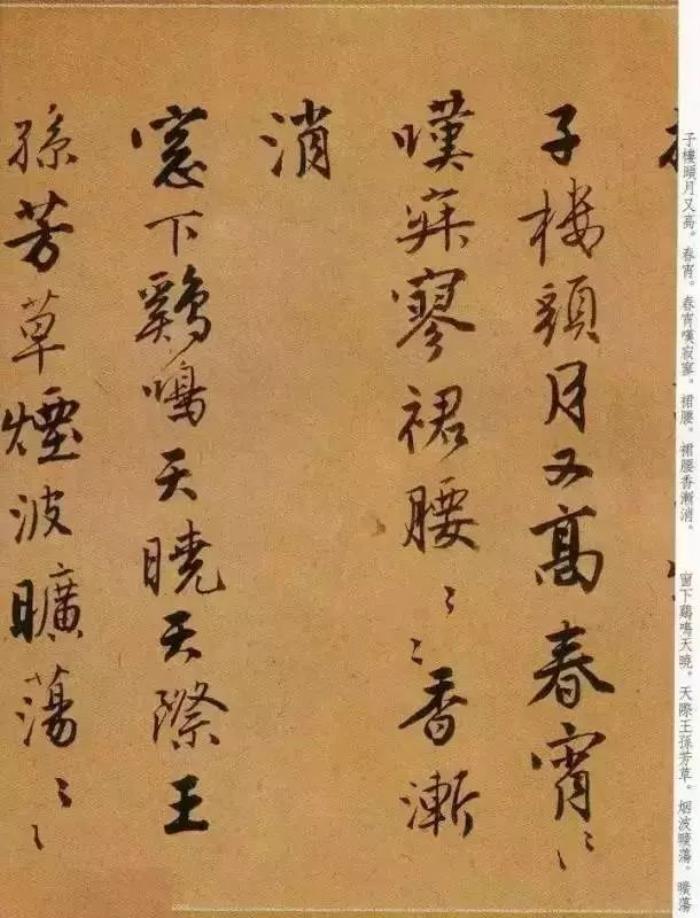 子樓頭月又高。春宵。春宵嘆寂寥。裙腰。裙腰香漸消。 窗下鷄鳴天曉。天際王孫芳草。烟波曠蕩。曠蕩
子樓頭月又高春宵〻〻
嘆寂寥裙腰〻〻香漸
消
窓下鷄鳴天曉天際王
孫芳草煙波曠蕩〻〻